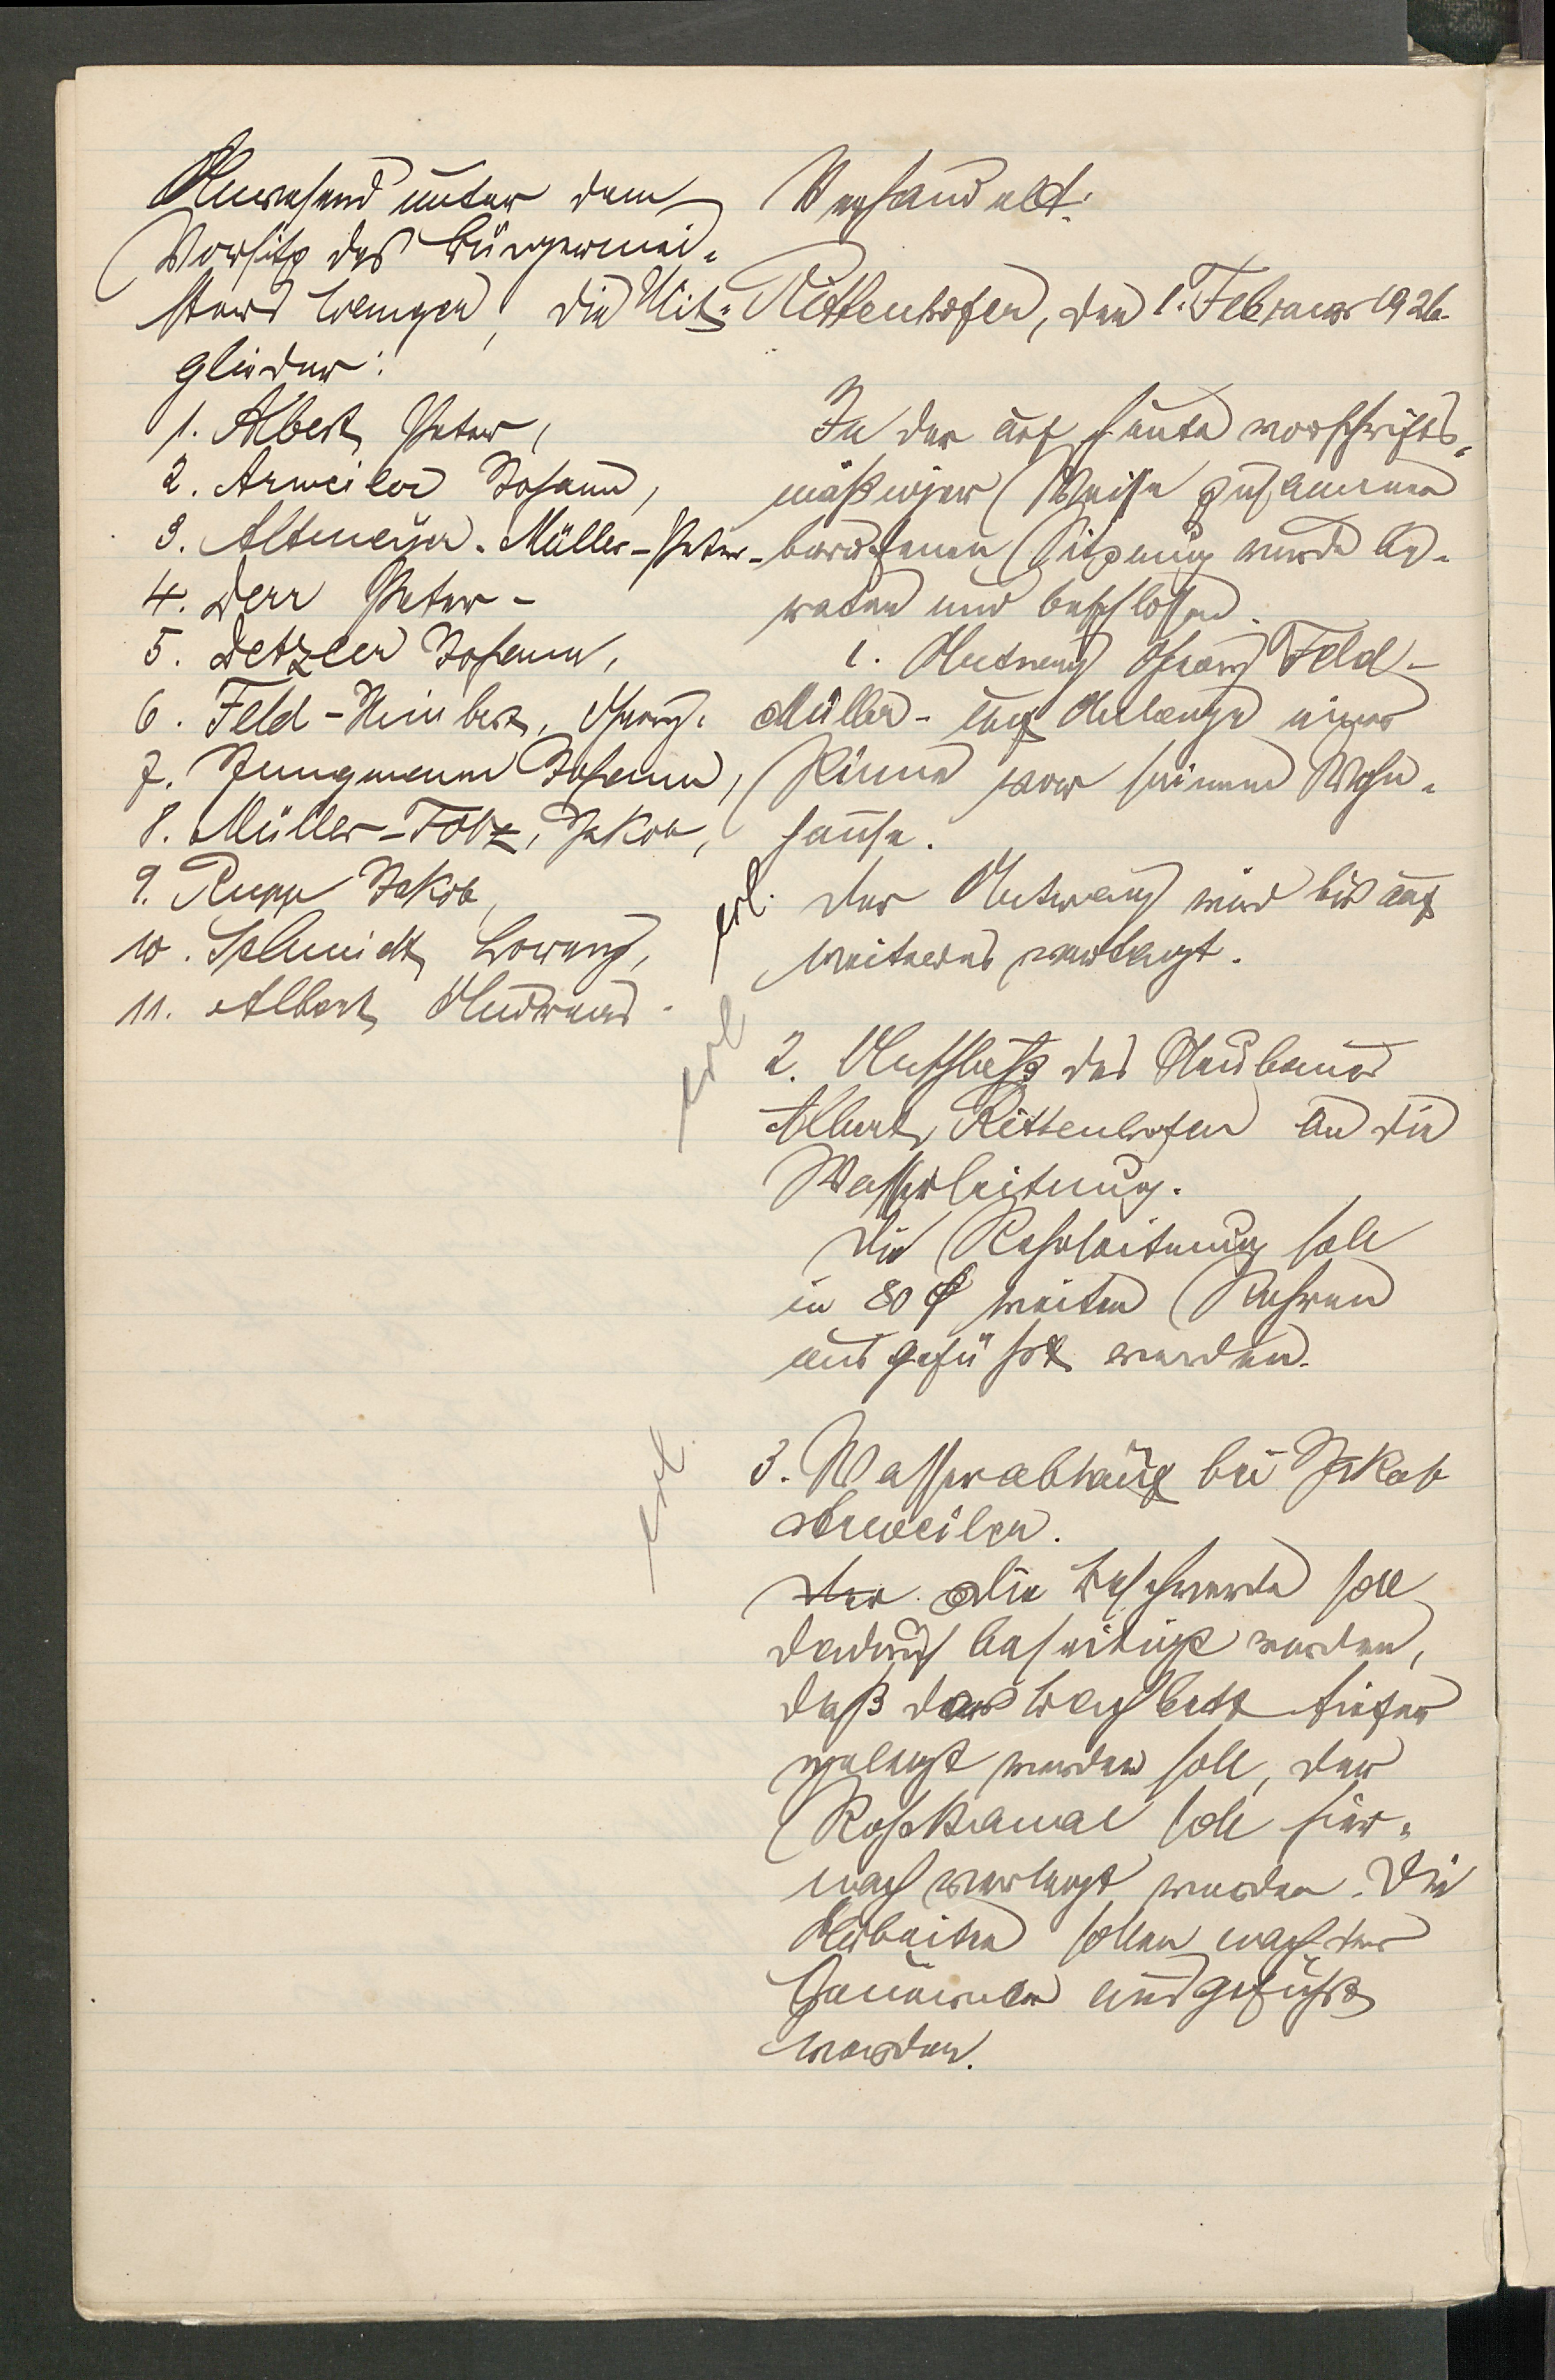 Anwesend unter dem
Vorsitz des Bürgermei-
sters, die Mit-
glieder:
1. Albert Peter,
2. Arweiler Johann,
3. Altmeyer-Müller-Peter-
4. Derr Peter-
5. Detzler Johann,
6. Feld-Georg.
7. Jungmann Johann,
8. Müller-Folz, Jakob,
9. Rupp Jakob,
10. Schmidt Lorenz,
11. Albert Andreas.
Verhandelt:
Rittenhofen, den 1. Februar 1926.
In der auf heute vorschrifts-
mäßiger Weise zusammen
berufenen Sitzung wurde be-
raten und beschlossen.
1. Antrag Georg Feld-
Müller- auf Anlage einer
Rinne vor seinem Wohn-
hause.
erl. Der Antrag wird bis auf
weiteres vertagt.
erl
2. Anschluß des Neubaues
Albert, Rittenhofen an die
Wasserleitung.
Die Rohrleitung soll
in 80 ϕ weiten Rohren
ausgeführt werden.
erl.
3. Wasserablauf bei Jakob
Arweiler.
Der Die Beschwerde soll
dadurch beseitigt werden,
daß das Bachbett tiefer
gelegt werden soll, der
Rohrkanal soll hier-
nach verlegt werden. Die
Arbeiten sollen nach der
ausgeführt
werden.